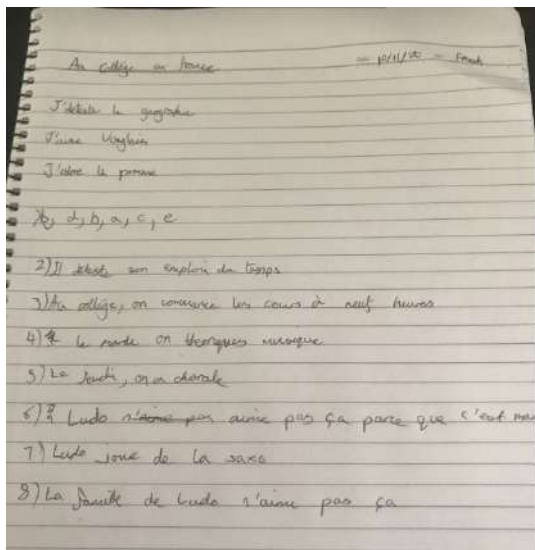 Au collège en France — 10/11/20 - French
J'déteste la géographie
J'aime l'anglais
J'adore la
d, b, a, c, e
2) Il déteste son emploi du temps
3) Au collège, on commence les cours à neuf heures
4) le on musique
5) Le Jeudi, on a chorale
6) Ludo aime pas ça parce que c'est
7) Ludo joue de la saxo
8) La famille de Ludo n'aime pas ça